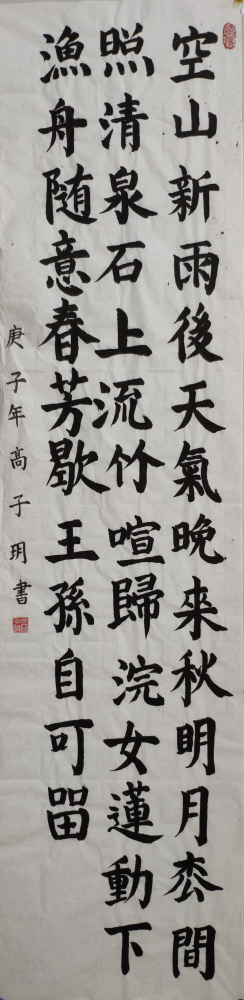 空山新雨後天氣晚来秋明月枩間
照清泉石上流竹喧歸浣女蓮動下
漁舟随意春芳歇王孫自可留
庚子年高子玥書